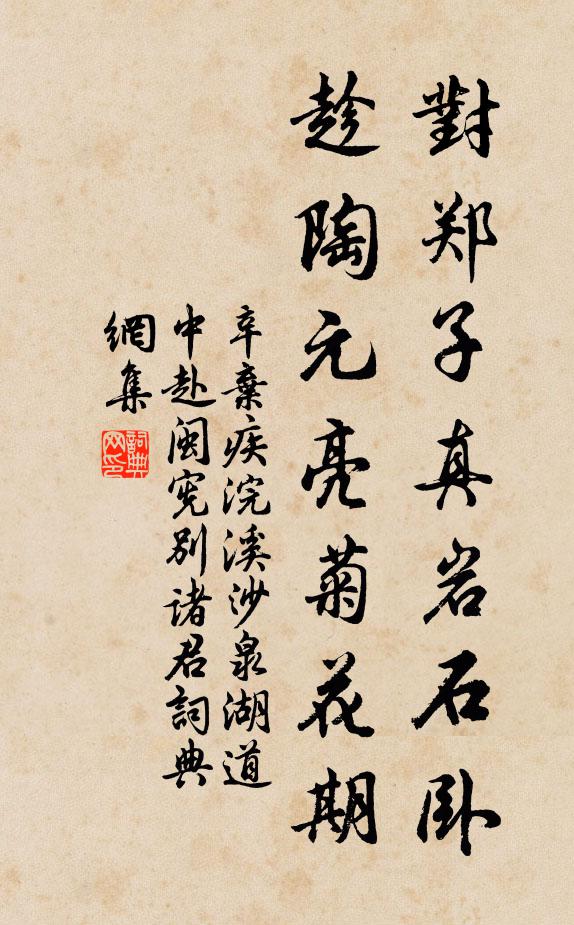 對郑子真岩石卧
趁陶元亮菊花期
辛棄疾浣溪沙泉湖道
中赴闽宪别诸君詞典
網集
詞典网印